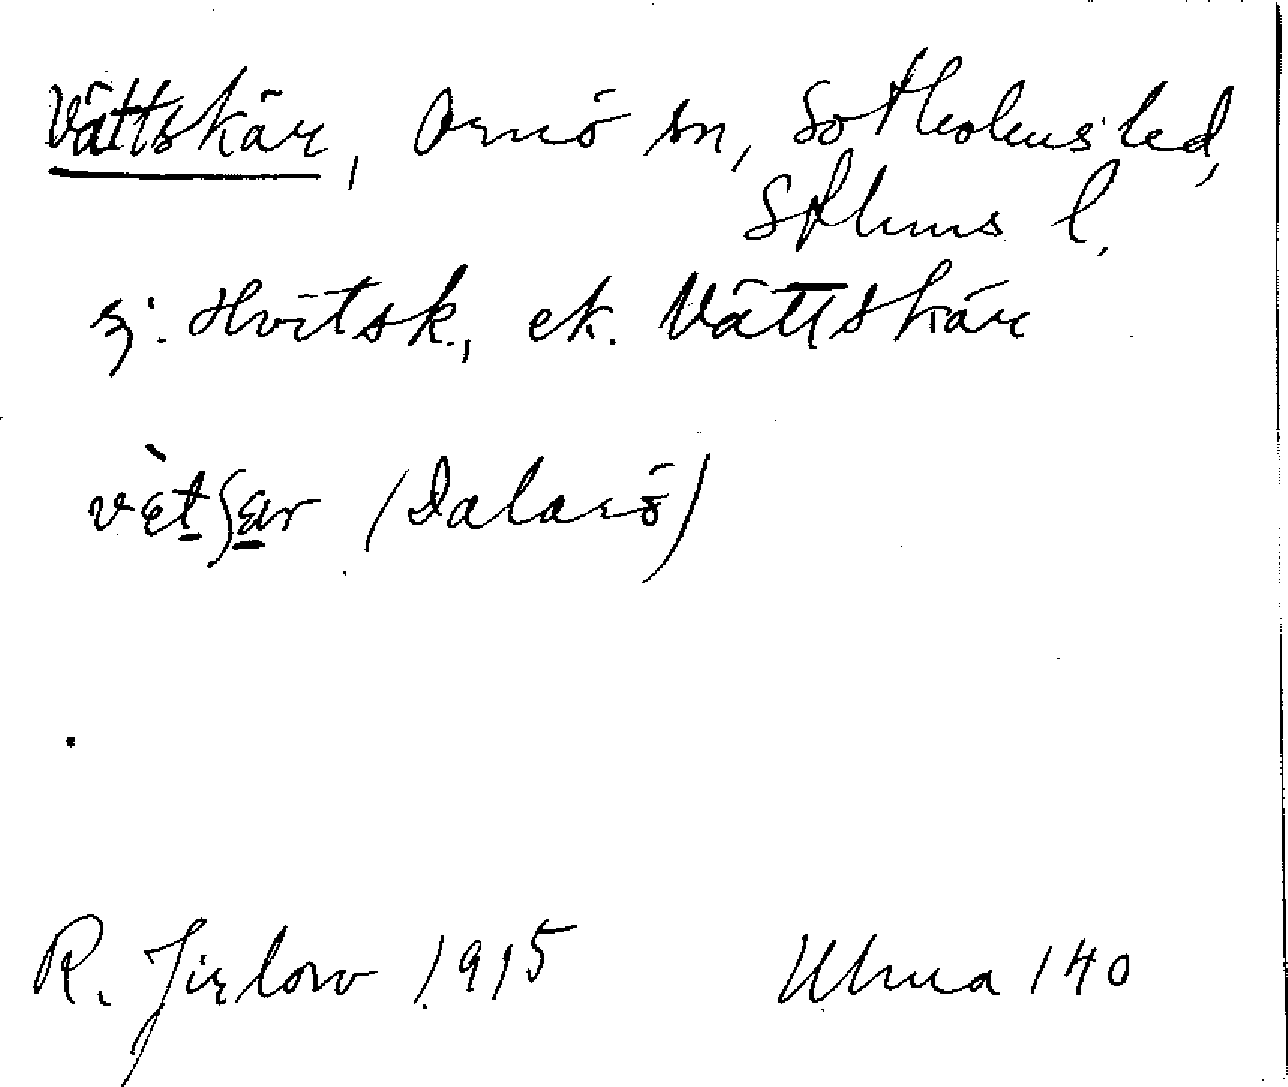 Vättskär, Ornö sn, Sotholms hd,
Sthlms l.
gj. Hvitsk., ek. Vättskär
vètʃær (Dalarö)
R. Jirlow 1915 Ulma 140